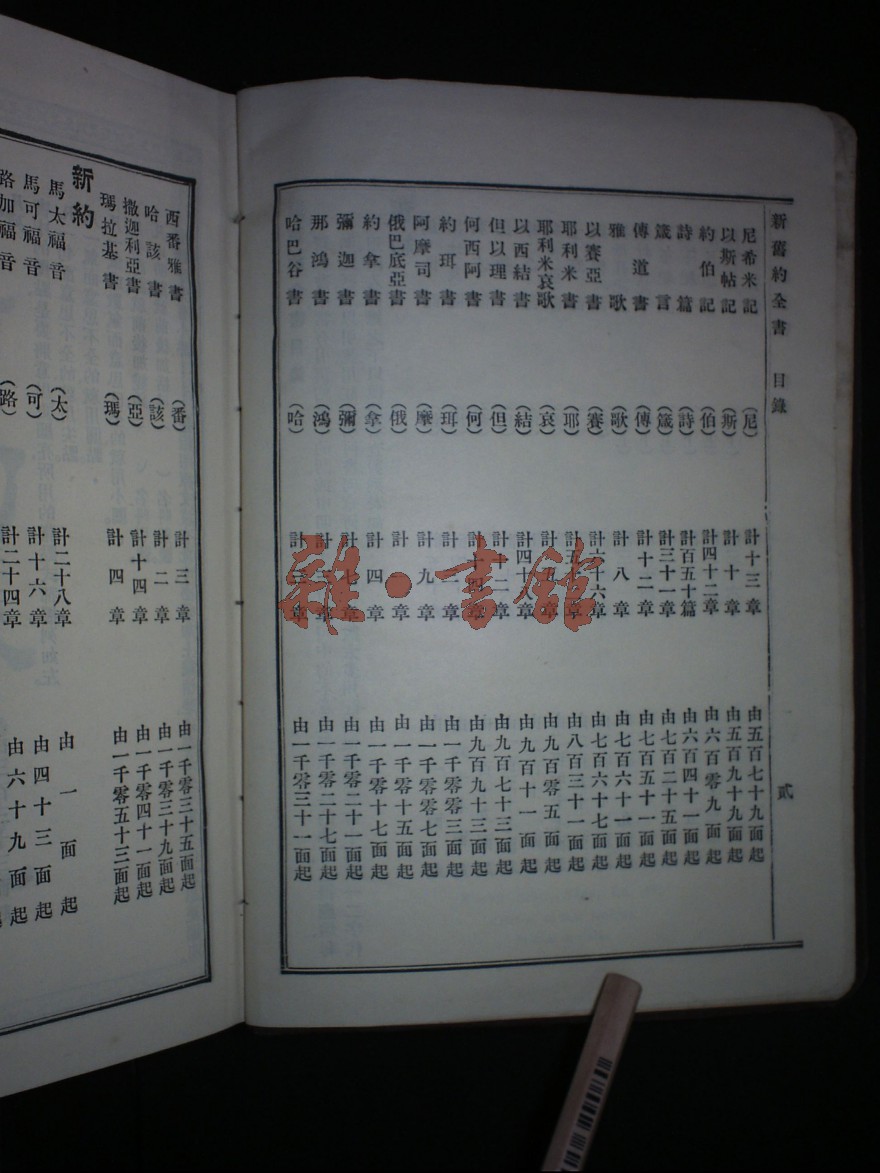 新舊約全書 目錄 貳
尼希米記 (尼) 計十三章 由五百七十九面起
以斯帖記 (斯) 計十章 由五百九十九面起
約伯記 (伯) 計四十二章 由六百零九面起
詩篇 (詩) 計百五十篇 由六百四十一面起
箴言 (箴) 計三十一章 由七百二十五面起
傳道書 (傳) 計十二章 由七百五十一面起
雅歌 (歌) 計八章 由七百六十一面起
以賽亞書 (賽) 計六十六章 由七百六十七面起
耶利米書 (耶) 計五 章 由八百三十一面起
耶利米哀歌 (哀) 計五章 由九百零五面起
以西結書 (結) 計四十八章 由九百十一面起
但以理書 (但) 計十二章 由九百七十三面起
何西阿書 (何) 計十四章 由九百九十三面起
約珥書 (珥) 計 章 由一千零零三面起
阿摩司書 (摩) 計九章 由一千零零七面起
俄巴底亞書 (俄) 計 章 由一千零十五面起
約拿書 (拿) 計四章 由一千零十七面起
彌迦書 (彌) 計七章 由一千零二十一面起
那鴻書 (鴻) 計三章 由一千零二十七面起
哈巴谷書 (哈) 計三章 由一千零三十一面起
西番雅書 (番) 計三章 由一千零三十五面起
哈該書 (該) 計二章 由一千零三十九面起
撒迦利亞書 (亞) 計十四章 由一千零四十一面起
瑪拉基書 (瑪) 計四章 由一千零五十三面起
新約
馬太福音 (太) 計二十八章 由一面起
馬可福音 (可) 計十六章 由四十三面起
路加福音 (路) 計二十四章 由六十九面起
雜·書館